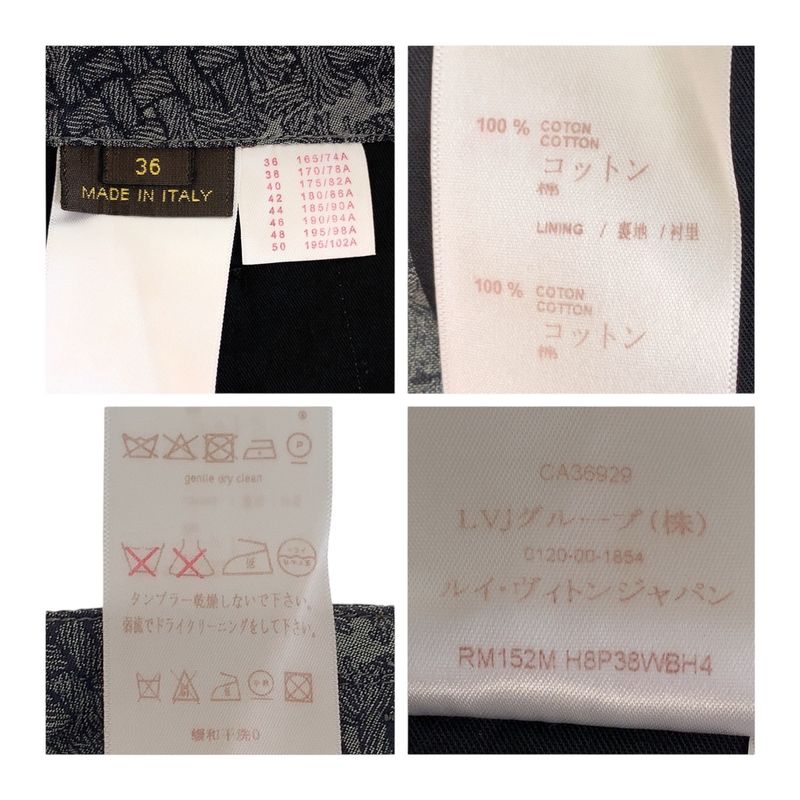 36
MADE IN ITALY
36 165/74A
38 170/78A
40 175/82A
42 180/86A
44 185/90A
46 190/94A
48 195/98A
50 195/102A
100 % COTON
COTTON
コットン
棉
LINING / 裏地 / 衬里
100 % COTON
COTTON
コットン
棉
P
gentle dry clean
ドライ
タンブラー乾燥しないで下さい。
弱流でドライクリーニングをして下さい。
缓和干洗
CA36929
LVJグループ(株)
0120-00-1854
ルイ・ヴィトンジャパン
RM152M H8P38WBH4